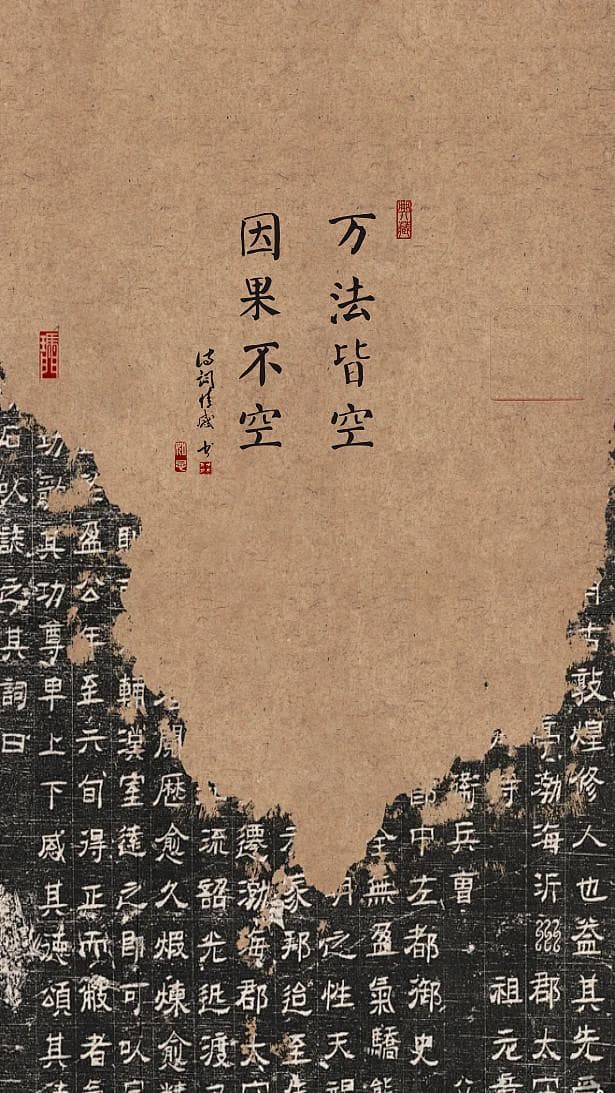 典藏
万法皆空
因果不空
诗词情感 书
古敦煌修人也益其先
渤海沂 郡太
祖元
衛兵曹
中左都御史
全無盈氣驕
之性天
家邦迨至
遷渤海郡太
流韶光迅渡
歷愈久煆煉愈
輔漢室達之即可以
盈公年至六旬得正而斃者
功歌其功尊卑上下感其德頌其
以誌之其詞曰